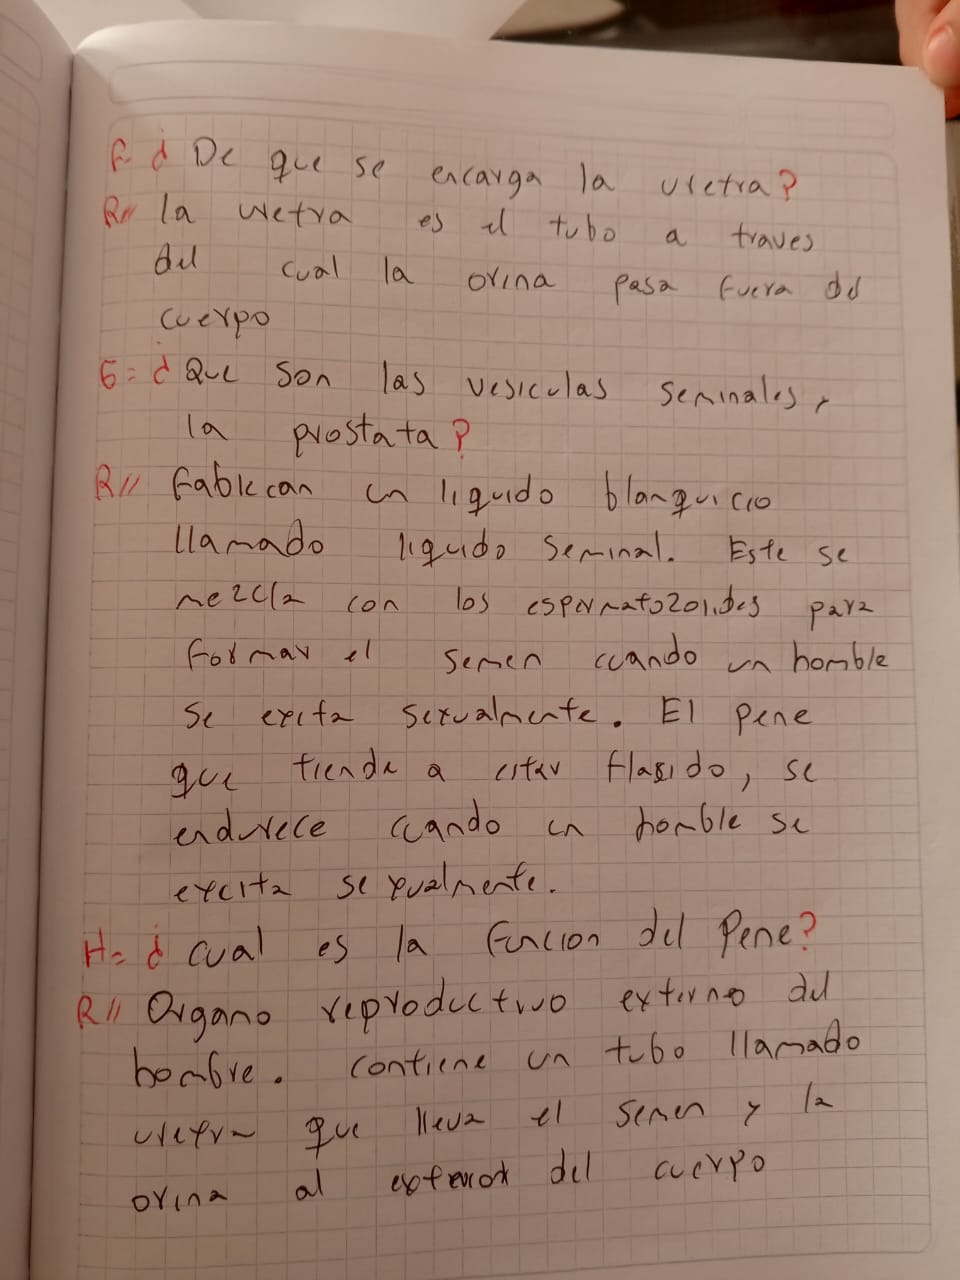 F- ¿ De que se encarga la uretra?
R// la uretra es el tubo a traves
del cual la orina pasa fuera del
cuerpo
G= ¿ Que son las vesiculas seminales y
la prostata?
R// Fabrican un liquido blanquicio
llamado liquido seminal. Este se
mezcla con los espermatozoides para
formar el semen cuando un homble
se excita sexualmente. El pene
que tiende a estar flasido, se
endurece cuando un homble se
excita sexualmente.
H= ¿ cual es la funcion del Pene?
R// Organo reproductivo externo del
hombre. contiene un tubo llamado
uretra que lleva el semen y la
orina al exterior del cuerpo